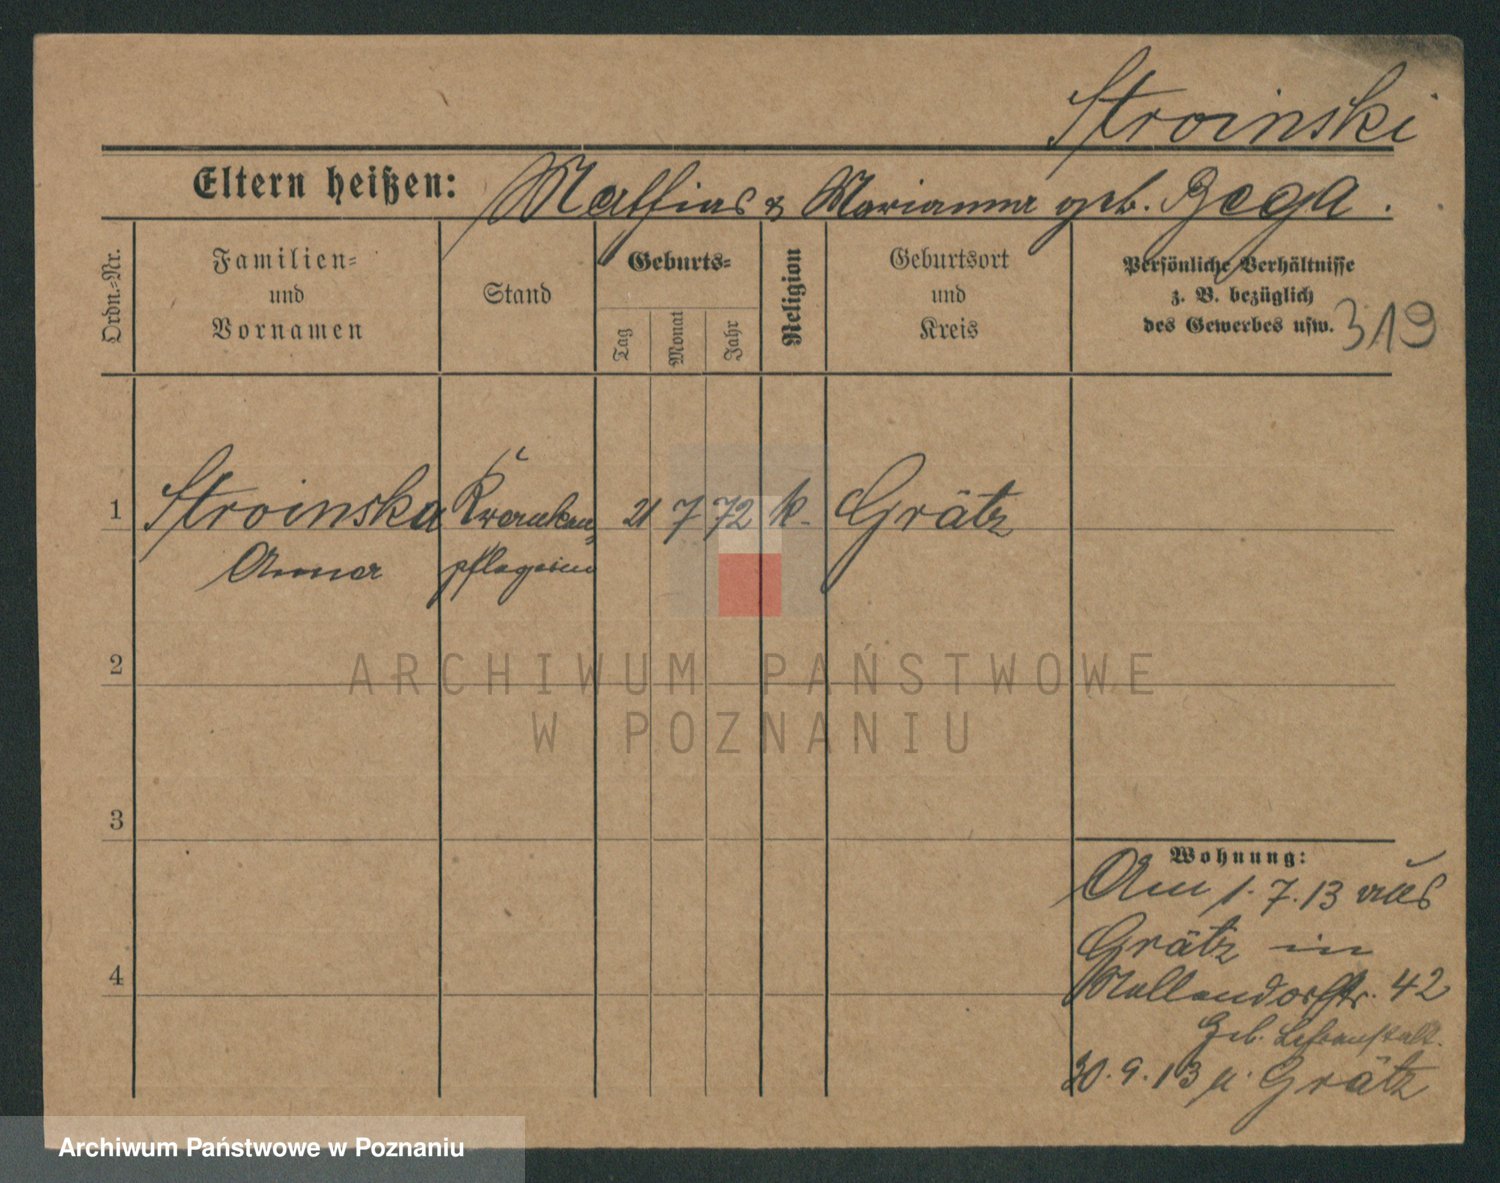 Stroinski
Eltern heißen: Mathias & Marianna geb. Bega.
Ordn.-Nr.
Familien-
und
Vornamen
Stand
Geburts-
Tag
Monat
Jahr
Religion
Geburtsort
und
Kreis
Persönliche Verhältnisse
z. B. bezüglich
des Gewerbes usw.
319
1 Stroinska Kranken- 21 7 72 k. Grätz
Anna pflegerin
2
3
4
Wohnung:
Am 1.7.13 aus
Grätz in
Nollendorfstr. 42
Geb. Lehranstalt.
30.9.13 n. Grätz
ARCHIWUM PAŃSTWOWE
W POZNANIU
Archiwum Państwowe w Poznaniu